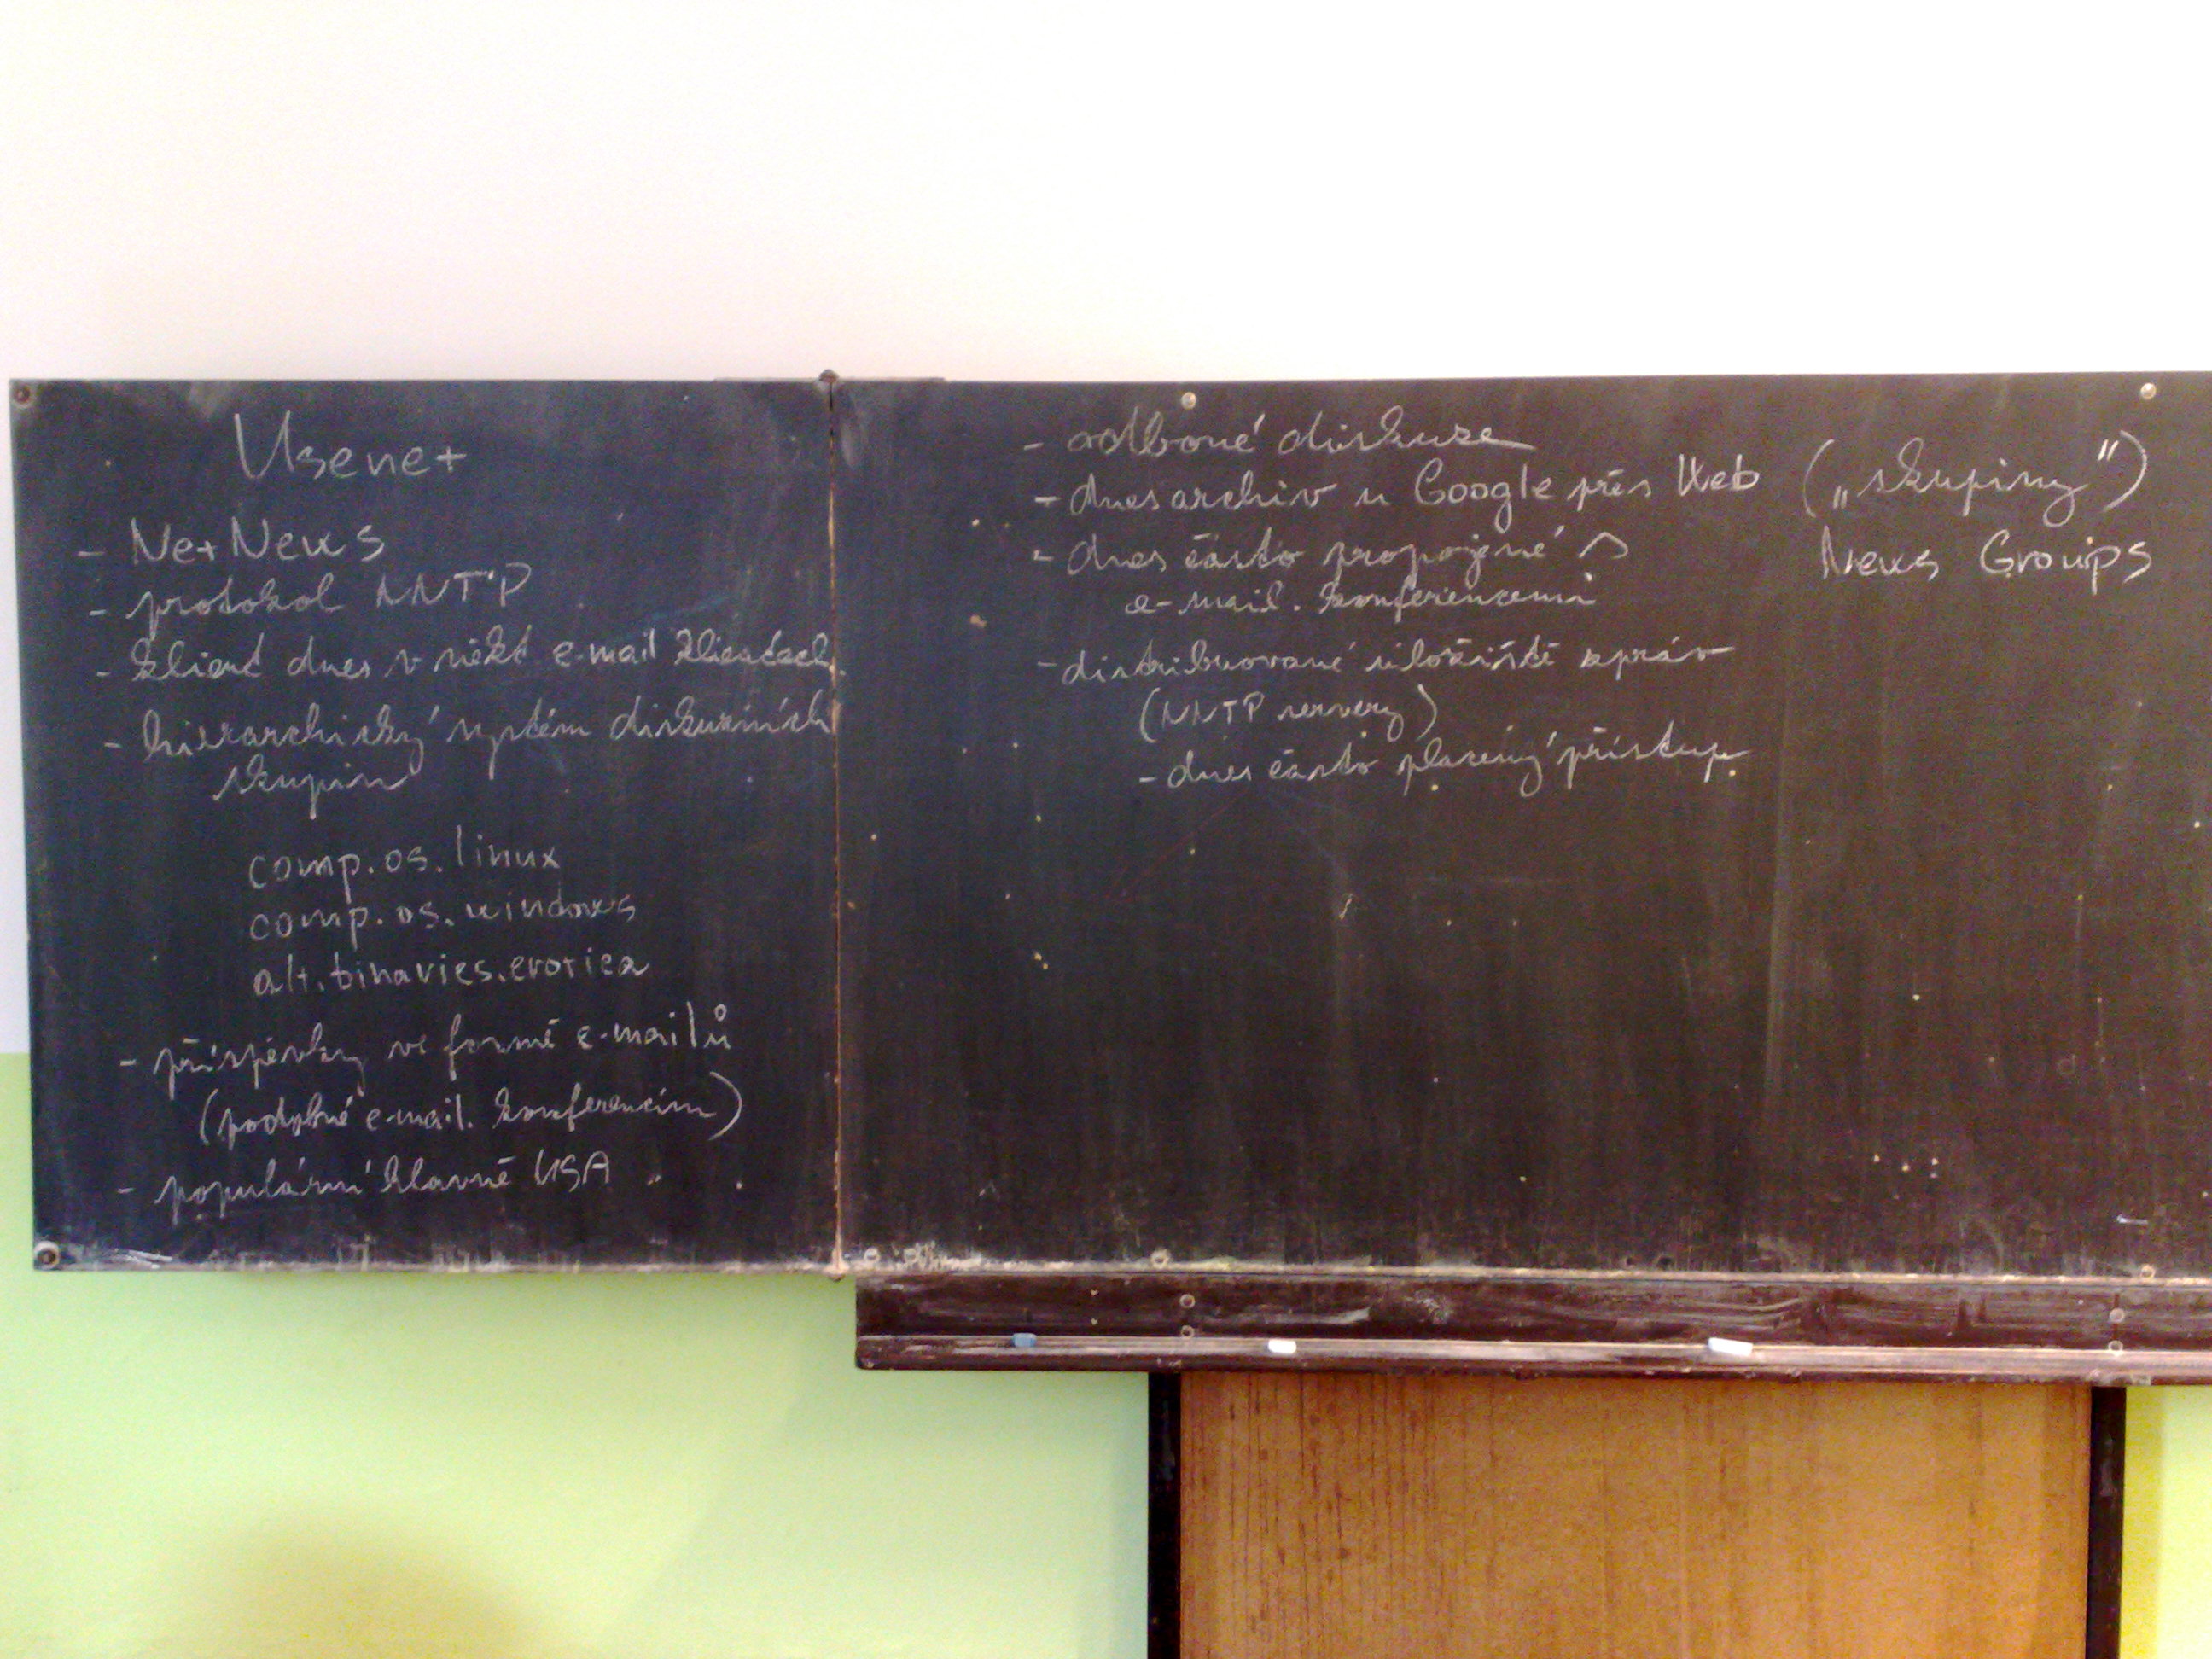 Usenet
- NetNews
- protokol NNTP
- klient dnes v někt e-mail klientech
- hierarchický systém diskuzních
skupin
comp.os.linux
comp.os.windows
alt.binaries.erotica
- příspěvky ve formě e-mailů
(podobné e-mail. konferencím)
- populární hlavně USA
- odborné diskuze
- dnes archiv u Google přes Web („skupiny”)
News Groups
- dnes často propojené s
e-mail. konferencemi
- distribuované úložiště zpráv
(NNTP servery)
- dnes často placený přístup